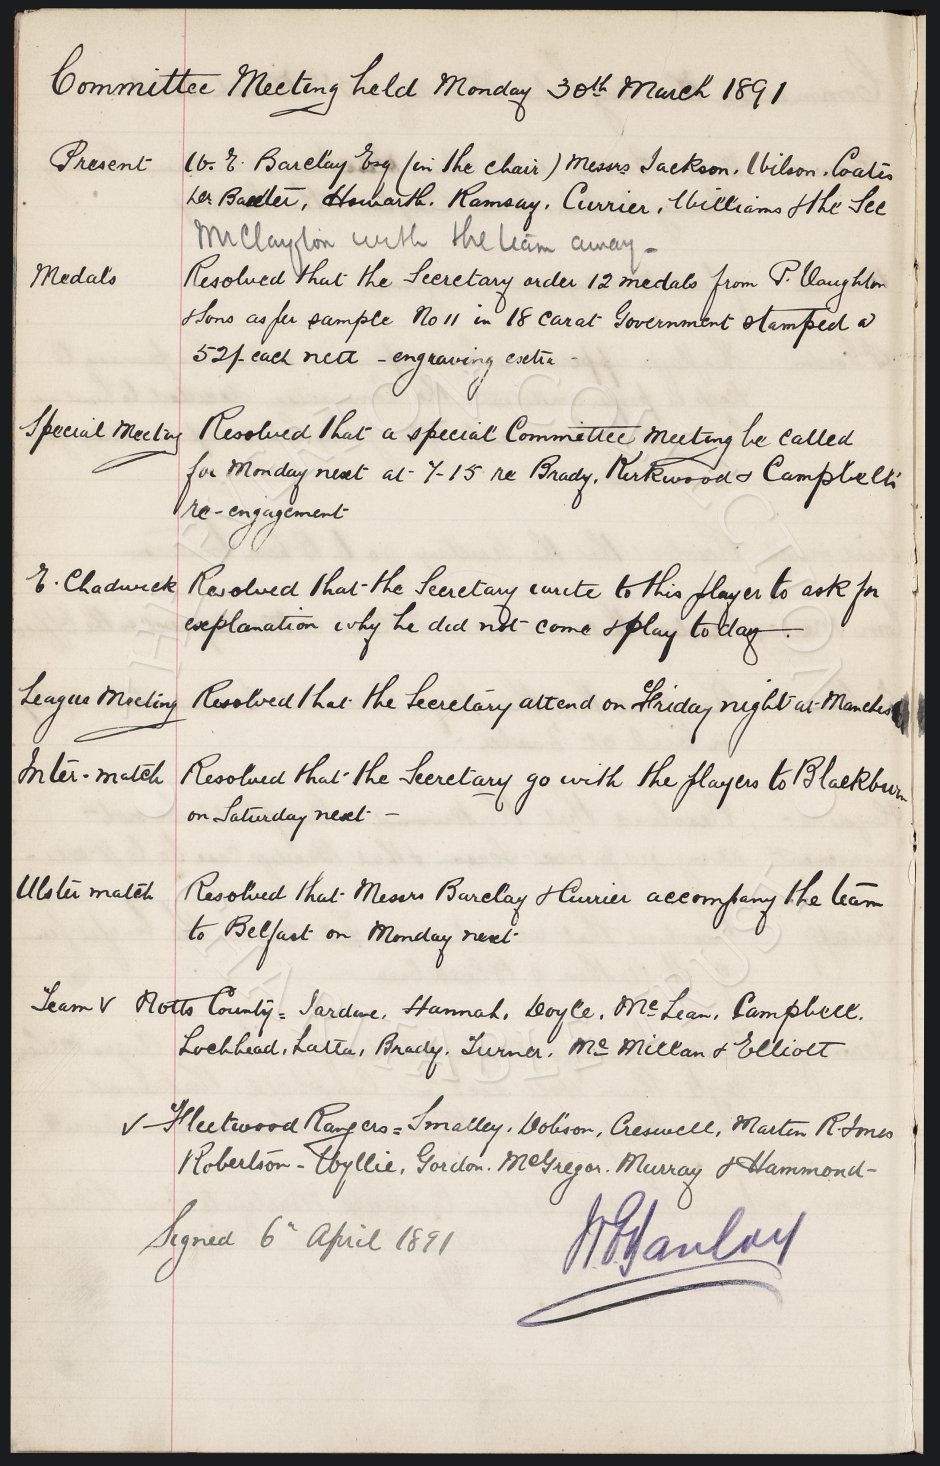 Committee Meeting held Monday 30th March 1891
Present W. E. Barclay Esq (in the chair) Messrs Jackson. Wilson. Coates
Dr Baxter, Howarth. Ramsay. Currier, Williams & the Sec
Mr Clayton with the team away -
Medals Resolved that the Secretary order 12 medals from P. Vaughton
& Sons as per sample No 11 in 18 carat Government stamped @
52/- each nett - engraving extra -
Special Meeting Resolved that a special Committee Meeting be called
for Monday next at 7-15 re Brady, Kirkwood & Campbell's
re-engagement
E. Chadwick Resolved that the Secretary write to this player to ask for
explanation why he did not come & play to day -
League Meeting Resolved that the Secretary attend on Friday night at Manches
Inter-match Resolved that the Secretary go with the players to Blackburn
on Saturday next -
Ulster match Resolved that Messrs Barclay & Currier accompany the team
to Belfast on Monday next
Team v Notts County = Jardine. Hannah. Doyle. McLean. Campbell.
Lochhead. Latta, Brady. Turner. McMillan & Elliott
v Fleetwood Rangers = Smalley. Dobson, Creswell, Martin R. Jones
Robertson - Wyllie, Gordon. McGregor. Murray & Hammond -
Signed 6th April 1891